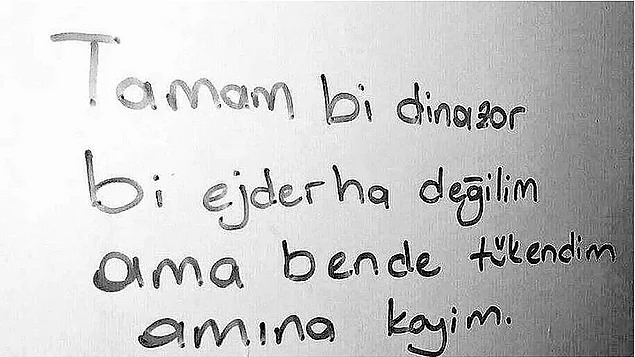 Tamam bi dinazor
bi ejderha değilim
ama bende tükendim
amına koyim.